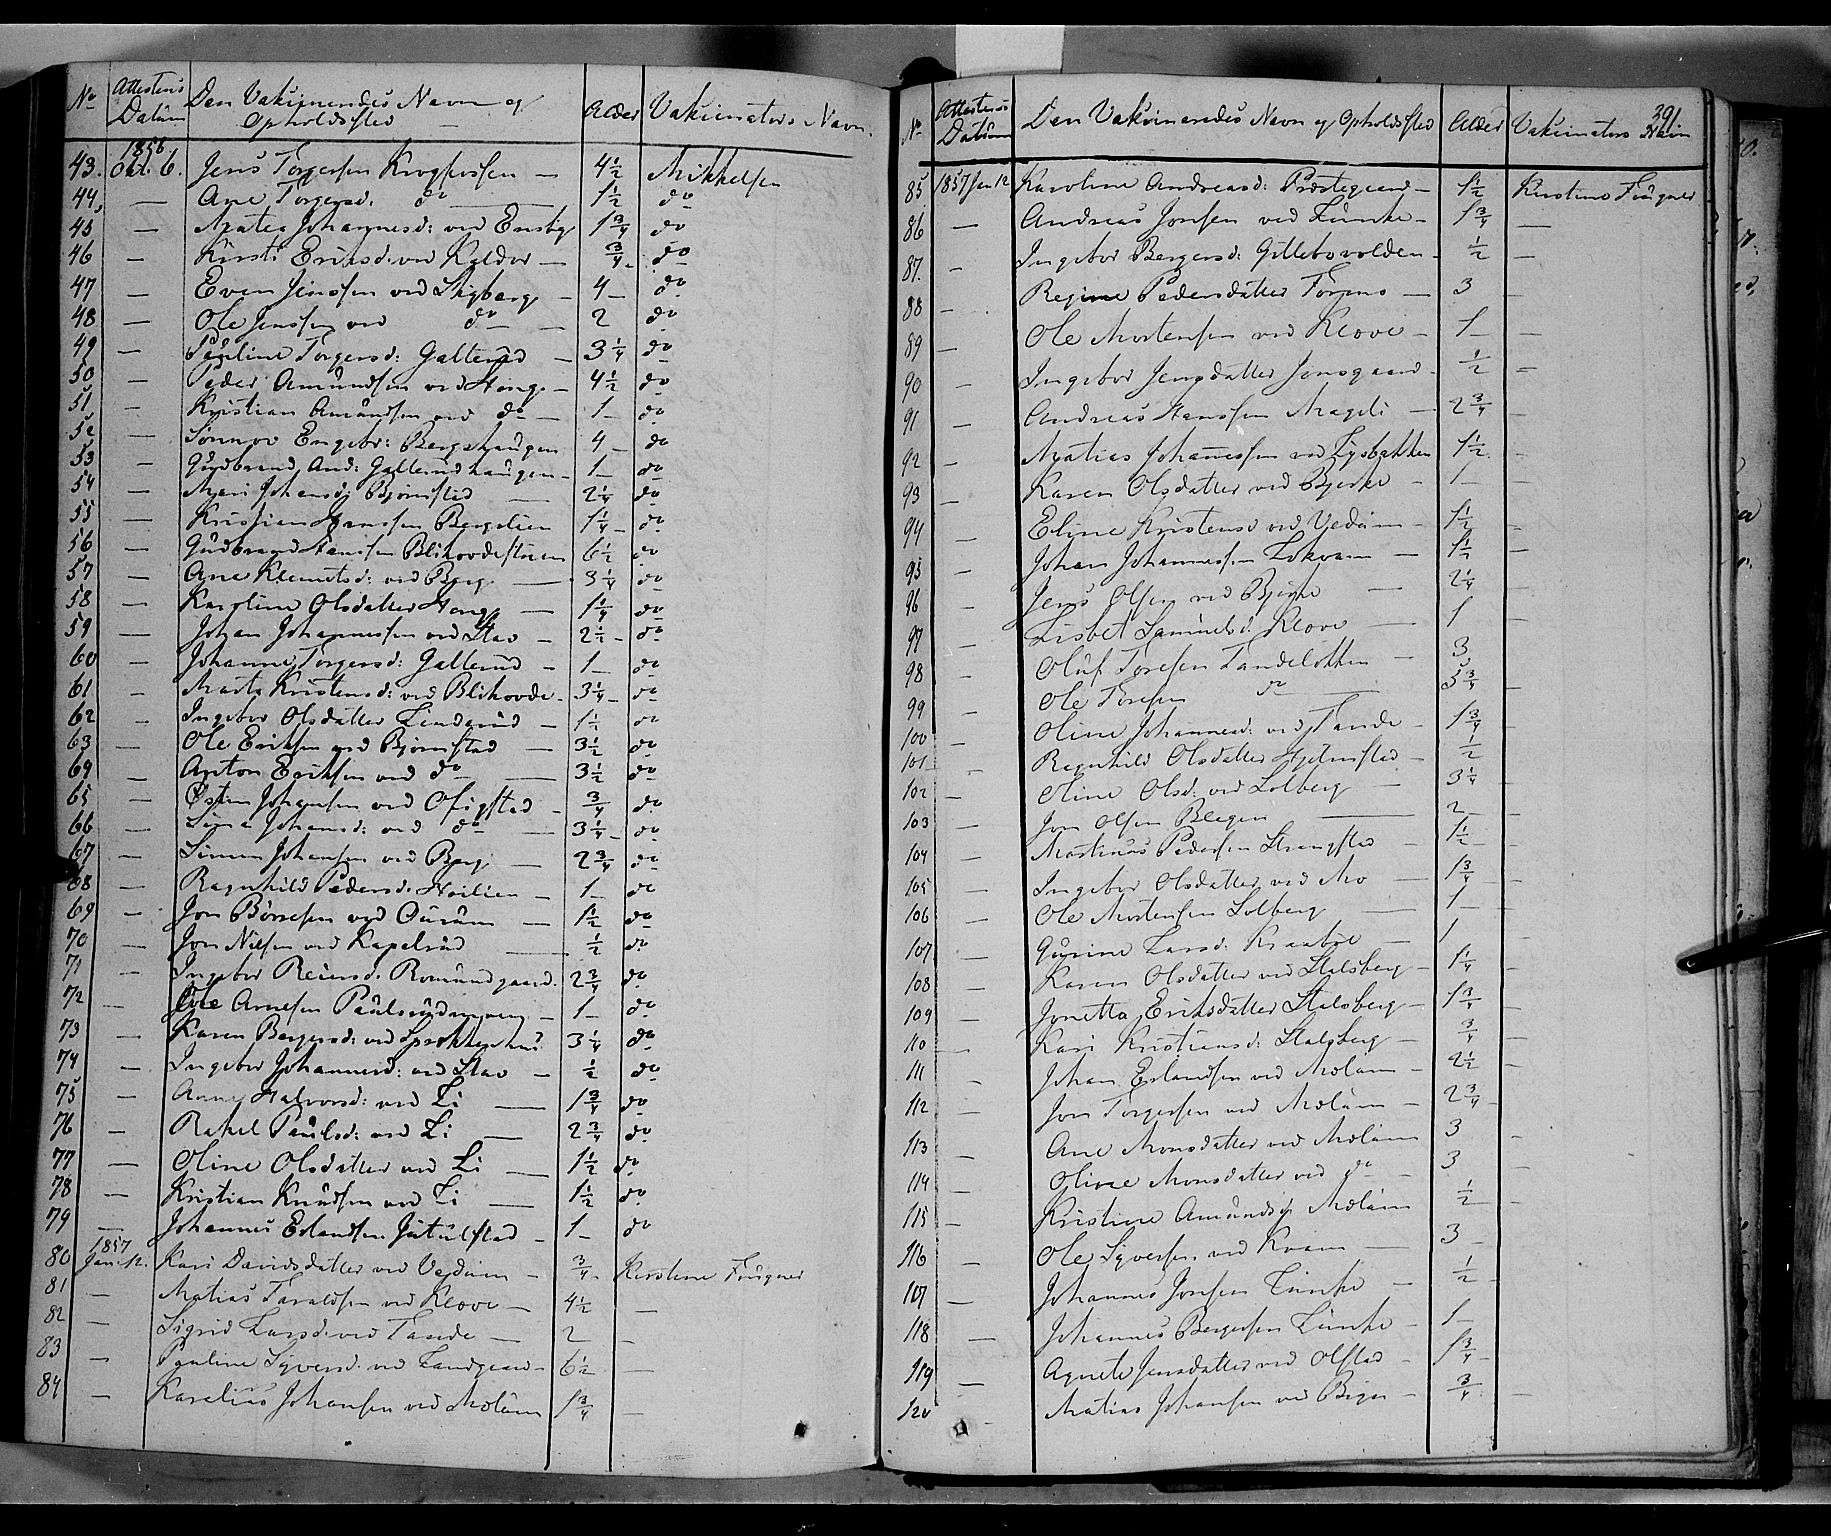 No Attestens Datum Den Vaksinendes Navn og Opholdssted Alder Vaksinators Navn
1856
43. Okt. 6. Jens Torgersen 4½ Mikkelsen
44. — Ane Torgersd: do — 1½ do
45 — Johannesd: ved 1¾ do
46 — Kirsti Eriksd. ved — ¾ do
47 — Even Jenssen ved Stigberg — 4 — do
48 — Ole Jenssen ved do — 2 do
49 — Pauline Torgersd: Gallerud — 3¼ do
50 — Peder Amundsen ved — 4½ do
51 — Kristian Amundsen ved do — 1 — do
52 — Sønnov Engebr: Bergshaugen 4 — do
53 — Gudbrand And: Gallerudhaugen — 1 — do
54 — Mari Johansd: Bjørnstad — 2¼ do
55 — Kristian Hanssen Bergelien 1¼ — do
56 — Gudbrand Hanssen Blihovdestuen 6½ do
57 — Ane Klemetsd: ved Berg — 3¼ do
58 — Karoline Olsdatter — 1¼ do
59 — Johan Johannessen ved Stav — 2½ — do
60 — Johanne Torgersd: Gallerud — 1 — do
61 — Marte Kristensd: ved Blihovde — 3¼ — do
62 — Ingebor Olsdatter Linderud — 1½ do
63 — Ole Eriksen ved Bjørnstad — 3½ do
64 — Anton Eriksen ved do — 3½ do
65 — Østen Johansen ved Ofigstad — ¾ do
66 — Johansd: ved do — 3¼ — do
67 — Simen Johansen ved Berg — 2¾ do
68 — Ragnhild Pedersd. — 1 — do
69 — Jon Børresen ved — 1½ do
70 — Jon Nilsen ved Kapelrud — ½ do
71 — Ingebor Romundgaard. 2¾ do
72 — Ole Arnesen — 1 — do
73 — Karen Bergersd: ved 3¼ do
74 — Ingebor Johannesd: ved Stav — ½ do
75 — Anne Halvorsd: ved Li — 1¾ do
76 — Rakel Paulsd: ved Li — 2¾ do
77 — Oline Olsdatter ved Li — 1½ do
78 — Kristian Knudsen ved Li — 1½ do
79 — Johannes Erlandsen Jutulstad — 1 — do
1857
80 Jan. 12. Kari Davidsdatter ved — ¾ — Kirstine Fougner
81 — Matias Taraldsen ved Klove — 4½ —
82 — Sigrid Larsd: ved Tande — 2 —
83 — Pauline Syversd: ved — 6½ —
84 — Karelius Johansen ved Melum 1¾ —
391
No Attestens Datum Den Vaksinendes Navn og Opholdssted Alder Vaksinators Navn
85 1857 Jan 12 Karoline Andreasd: Prestegaard — 1½ Kirstine Fougner
86 — Andreas Jonsen ved Lunke — 1¾ —
87. — Ingebor Bergersd: Gillebovolden — ½ —
88 — Regine Pedersdatter Formo — 3 —
89 — Ole Mortensen ved Klove — 1 — —
90 — Ingebor Jensdatter Jonsgaard — ½ —
91 — Andreas Hanssen Mageli — 2¾ —
92 — Johannessen ved Lysbakken 1½ —
93 — Karen Olsdatter ved Bjerke — 1 — —
94 — Eline Kristensd ved — 1½ —
95 — Johan Johanness. Lokvam — 1½ —
96 — Jens Olsen ved Bjerke — 2¼ —
97 — Lisbet Samuelsd: Klove — 1 —
98 — Oluf Toresen Tandeløkken — 3
99 — Ole Toresen do — 5¾ —
100 — Oline Johannesd: ved Tande — 1¾ —
101 — Ragnhild Olsdatter Hjelmstad — ½ —
102 — Oline Olsd: ved Solberg — 3¼ —
103 — Jon Olsen Blegen — 2 — —
104 — Martinus Pedersen Strangstad — 1½ —
105 — Ingebor Olsdatter ved Mo — 1¾ —
106 — Ole Mortensen Solberg — 1 — —
107 — Gurine Larsd: Kraabøl — 1 —
108 — Karen Olsdatter ved Stalsberg — 1¼ —
109 — Jonetta Eriksdatter Stalsberg — 1¾ —
110 — Kari Kristiansd: Stalsberg — ¾ —
111 — Johan Erlandsen ved Melum — 2½ —
112 — Jon Torgersen ved Melum — 2¾ —
113 — Ane Monsdatter ved Melum 3 —
114 — Oline Monsdatter ved do — 3 —
115 — Kristine Amundsd Melum ½ —
116 — Ole Syversen ved Kvam — 3 —
117 — Johannes Jonsen Lunke — ½ —
118 — Johannes Bergersen Lunke — 1 —
119 — Agnete Jensdatter ved Olstad — 1¾ —
120 — Matias Johansen ved — ¾ —